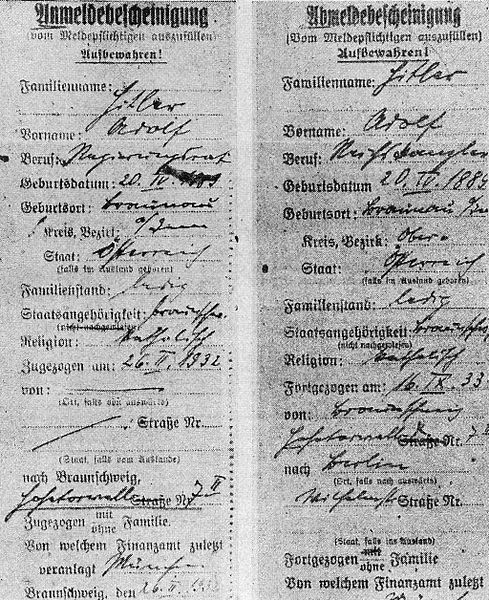 Anmeldebescheinigung
(vom Meldepflichtigen auszufüllen)
Aufbewahren!
Familienname: Hitler
Vorname: Adolf
Beruf: Regierungsrat
Geburtsdatum: 20. IV. 1889
Geburtsort: Braunau
Kreis, Bezirk: a/Inn
Staat: Österreich
(falls im Ausland geboren)
Familienstand: ledig
Staatsangehörigkeit:
(nicht nachgewiesen)
Religion: katholisch
Zugezogen am: 26. II. 1932
von:
(Ort, falls von auswärts)
Straße Nr.
(Staat, falls vom Auslande)
nach Braunschweig,
Hohetorwall Straße Nr. 7 II
Zugezogen mit ohne Familie.
Von welchem Finanzamt zuletzt
veranlagt München
Braunschweig, den 26. II. 1932
Abmeldebescheinigung
(Vom Meldepflichtigen auszufüllen)
Aufbewahren!
Familienname: Hitler
Vorname: Adolf
Beruf: Reichskanzler
Geburtsdatum 20. IV. 1889
Geburtsort: Braunau a/Inn
Kreis, Bezirk: Ober-
Staat: Österreich
(falls im Ausland geboren)
Familienstand: ledig
Staatsangehörigkeit:
(nicht nachgewiesen)
Religion: katholisch
Fortgezogen am: 16. IX. 33
von: Braunschweig
Hohetorwall Straße Nr. 7 II
nach Berlin
(Ort, falls nach auswärts)
Wilhelmst. Straße Nr.
(Staat, falls ins Ausland)
Fortgezogen mit ohne Familie
Von welchem Finanzamt zuletzt